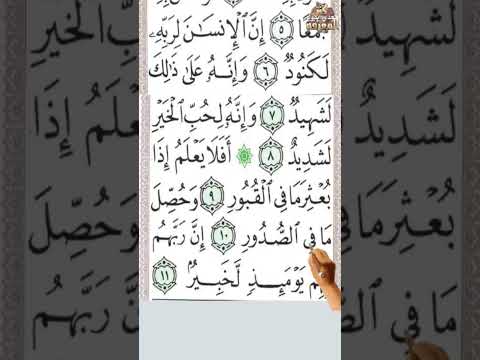 جَمْعًا ٥ إِنَّ ٱلْإِنسَٰنَ لِرَبِّهِۦ
لَكَنُودٌ ٦ وَإِنَّهُۥ عَلَىٰ ذَٰلِكَ
لَشَهِيدٌ ٧ وَإِنَّهُۥ لِحُبِّ ٱلْخَيْرِ
لَشَدِيدٌ ٨ ۞ أَفَلَا يَعْلَمُ إِذَا
بُعْثِرَ مَا فِي ٱلْقُبُورِ ٩ وَحُصِّلَ
مَا فِي ٱلصُّدُورِ ١٠ إِنَّ رَبَّهُم
بِهِمْ يَوْمَئِذٍ لَّخَبِيرٌۢ ١١